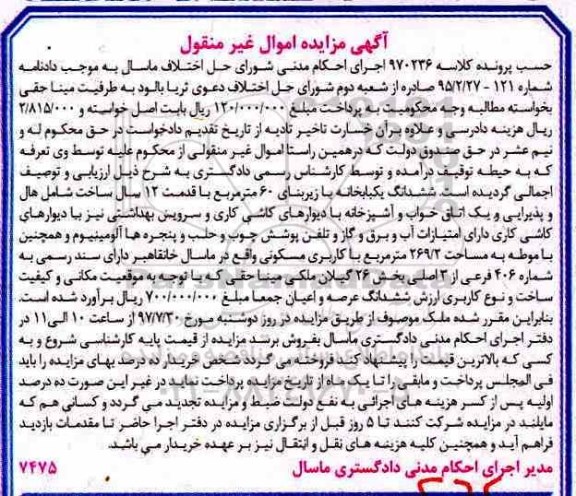 آگهی مزایده اموال غیر منقول
حسب پرونده کلاسه ۹۷۰۲۳۶ اجرای احکام مدنی شورای حل اختلاف ماسال به موجب دادنامه
شماره ۱۲۱ - ۹۵/۲/۲۷ صادره از شعبه دوم شورای حل اختلاف دعوی ثریا بالود به طرفیت مینا حقی
بخواسته مطالبه وجه محکومیت به پرداخت مبلغ ۱۲۰/۰۰۰/۰۰۰ ریال بابت اصل خواسته و ۲/۸۱۵/۰۰۰
ریال هزینه دادرسی و علاوه بر آن خسارت تاخیر تادیه از تاریخ تقدیم دادخواست در حق محکوم له و
نیم عشر در حق صندوق دولت که درهمین راستا اموال غیر منقولی از محکوم علیه توسط وی تعرفه
که به حیطه توقیف درآمده و توسط کارشناس رسمی دادگستری به شرح ذیل ارزیابی و توصیف
اجمالی گردیده است. ششدانگ یکبابخانه با زیربنای ۶۰ مترمربع با قدمت ۱۲ سال ساخت شامل هال
و پذیرایی و یک اتاق خواب و آشپزخانه با دیوارهای کاشی کاری و سرویس بهداشتی نیز با دیوارهای
کاشی کاری دارای امتیازات آب و برق و گاز و تلفن پوشش چوب و حلب و پنجره ها آلومینیوم و همچنین
با موطه به مساحت ۲۶۹/۲ مترمربع با کاربری مسکونی واقع در ماسال خانقاهبر دارای سند رسمی به
شماره ۴۰۶ فرعی از ۳ اصلی بخش ۲۶ گیلان ملکی مینا حقی که با توجه به موقعیت مکانی و کیفیت
ساخت و نوع کاربری ارزش ششدانگ عرصه و اعیان جمعا مبلغ ۷۰۰/۰۰۰/۰۰۰ ریال برآورد شده است.
بنابراین مقرر شده ملک موصوف از طریق مزایده در روز دوشنبه مورخ ۹۷/۷/۳۰ از ساعت ۱۰ الی۱۱ در
دفتر اجرای احکام مدنی دادگستری ماسال بفروش برسد مزایده از قیمت پایه کارشناسی شروع و به
کسی که بالاترین قیمت را پیشنهاد کند فروخته می گردد شخص خریدار ده درصد بهای مزایده را باید
فی المجلس پرداخت و مابقی را تا یک ماه از تاریخ مزایده پرداخت نماید در غیر این صورت ده درصد
اولیه پس از کسر هزینه های اجرائی به نفع دولت ضبط و مزایده تجدید می گردد و کسانی هم که
مایلند در مزایده شرکت کنند تا ۵ روز قبل از برگزاری مزایده در دفتر اجرا حاضر تا مقدمات بازدید
فراهم آید و همچنین کلیه هزینه های نقل و انتقال نیز بر عهده خریدار می باشد.
مدیر اجرای احکام مدنی دادگستری ماسال ۷۴۷۵